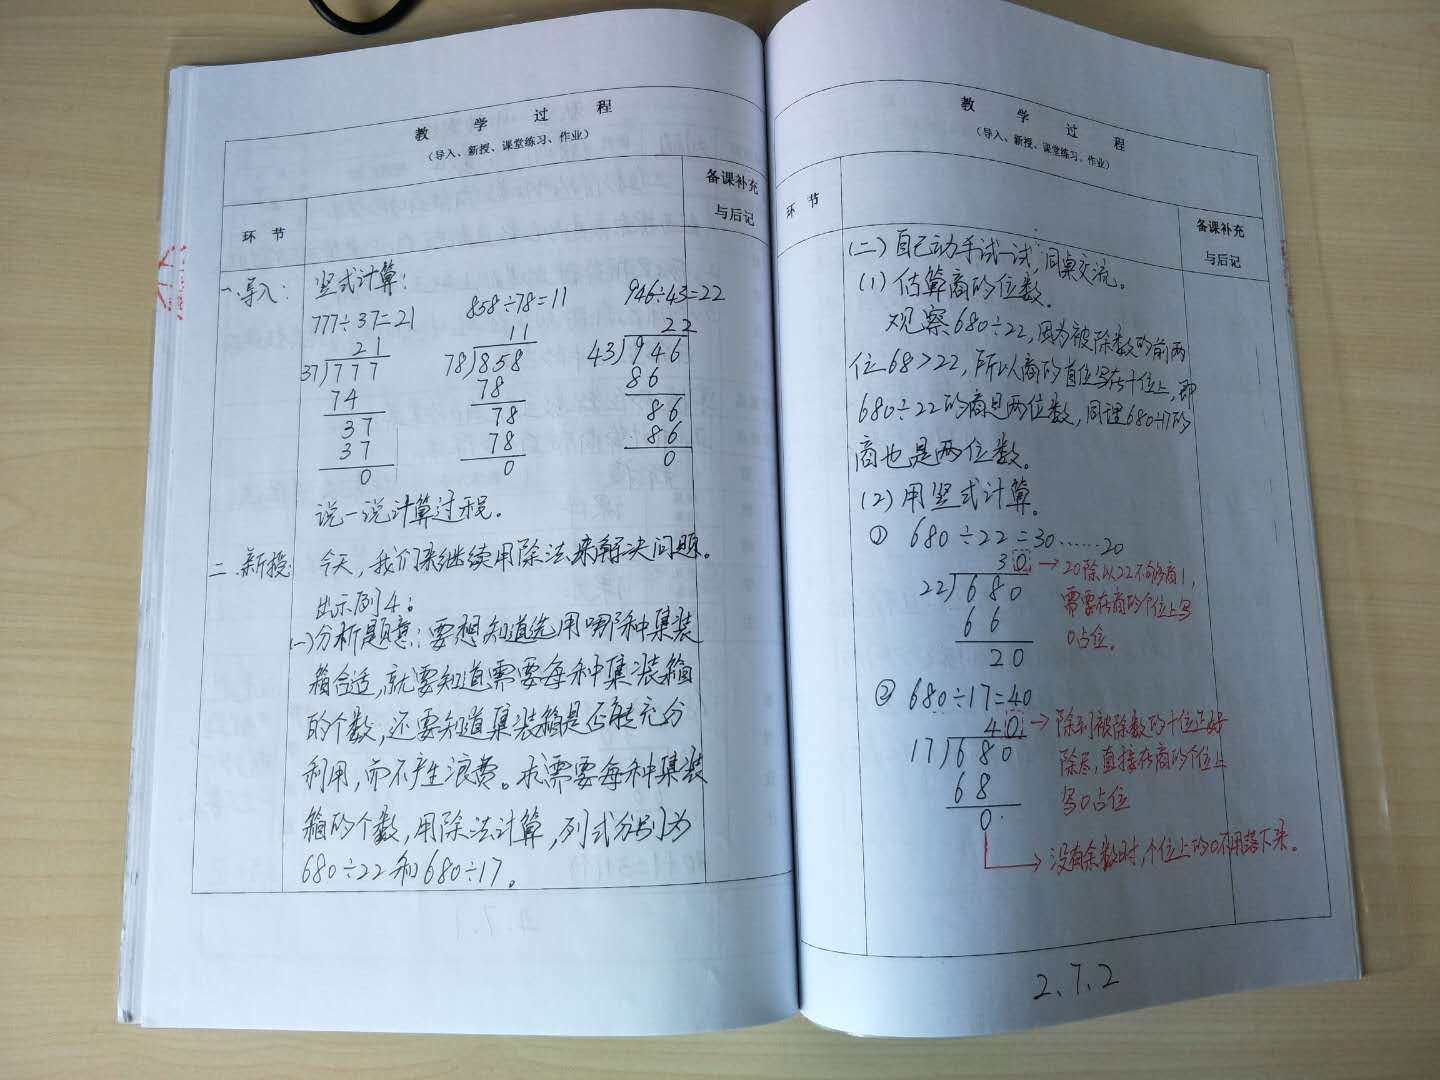 教 学 过 程
(导入、新授、课堂练习、作业)
环 节
备课补充
与后记
一.导入:
竖式计算:
777÷37=21
858÷78=11
946÷43=22
21
37)777
74
37
37
0
11
78)858
78
78
78
0
22
43)946
86
86
86
0
说一说计算过程。
二.新授:
今天,我们来继续用除法来解决问题。
出示例4:
(一)分析题意:要想知道选用哪种集装
箱合适,就要知道需要每种集装箱
的个数,还要知道集装箱是否能充分
利用,而不产生浪费。求需要每种集装
箱的个数,用除法计算,列式分别为
680÷22和680÷17。
教 学 过 程
(导入、新授、课堂练习、作业)
环 节
备课补充
与后记
(二)自己动手试一试,同桌交流。
(1)估算商的位数。
观察680÷22,因为被除数的前两
位68>22,所以商的首位写在十位上,即
680÷22的商是两位数,同理680÷17的
商也是两位数。
(2)用竖式计算。
① 680÷22=30……20
30
22)680
66
20
→20除以22不够商1,
需要在商的个位上写
0占位。
② 680÷17=40
40
17)680
68
0
→除到被除数的十位正好
除尽,直接在商的个位上
写0占位
→没有余数时,个位上的0不用落下来。
2.7.2